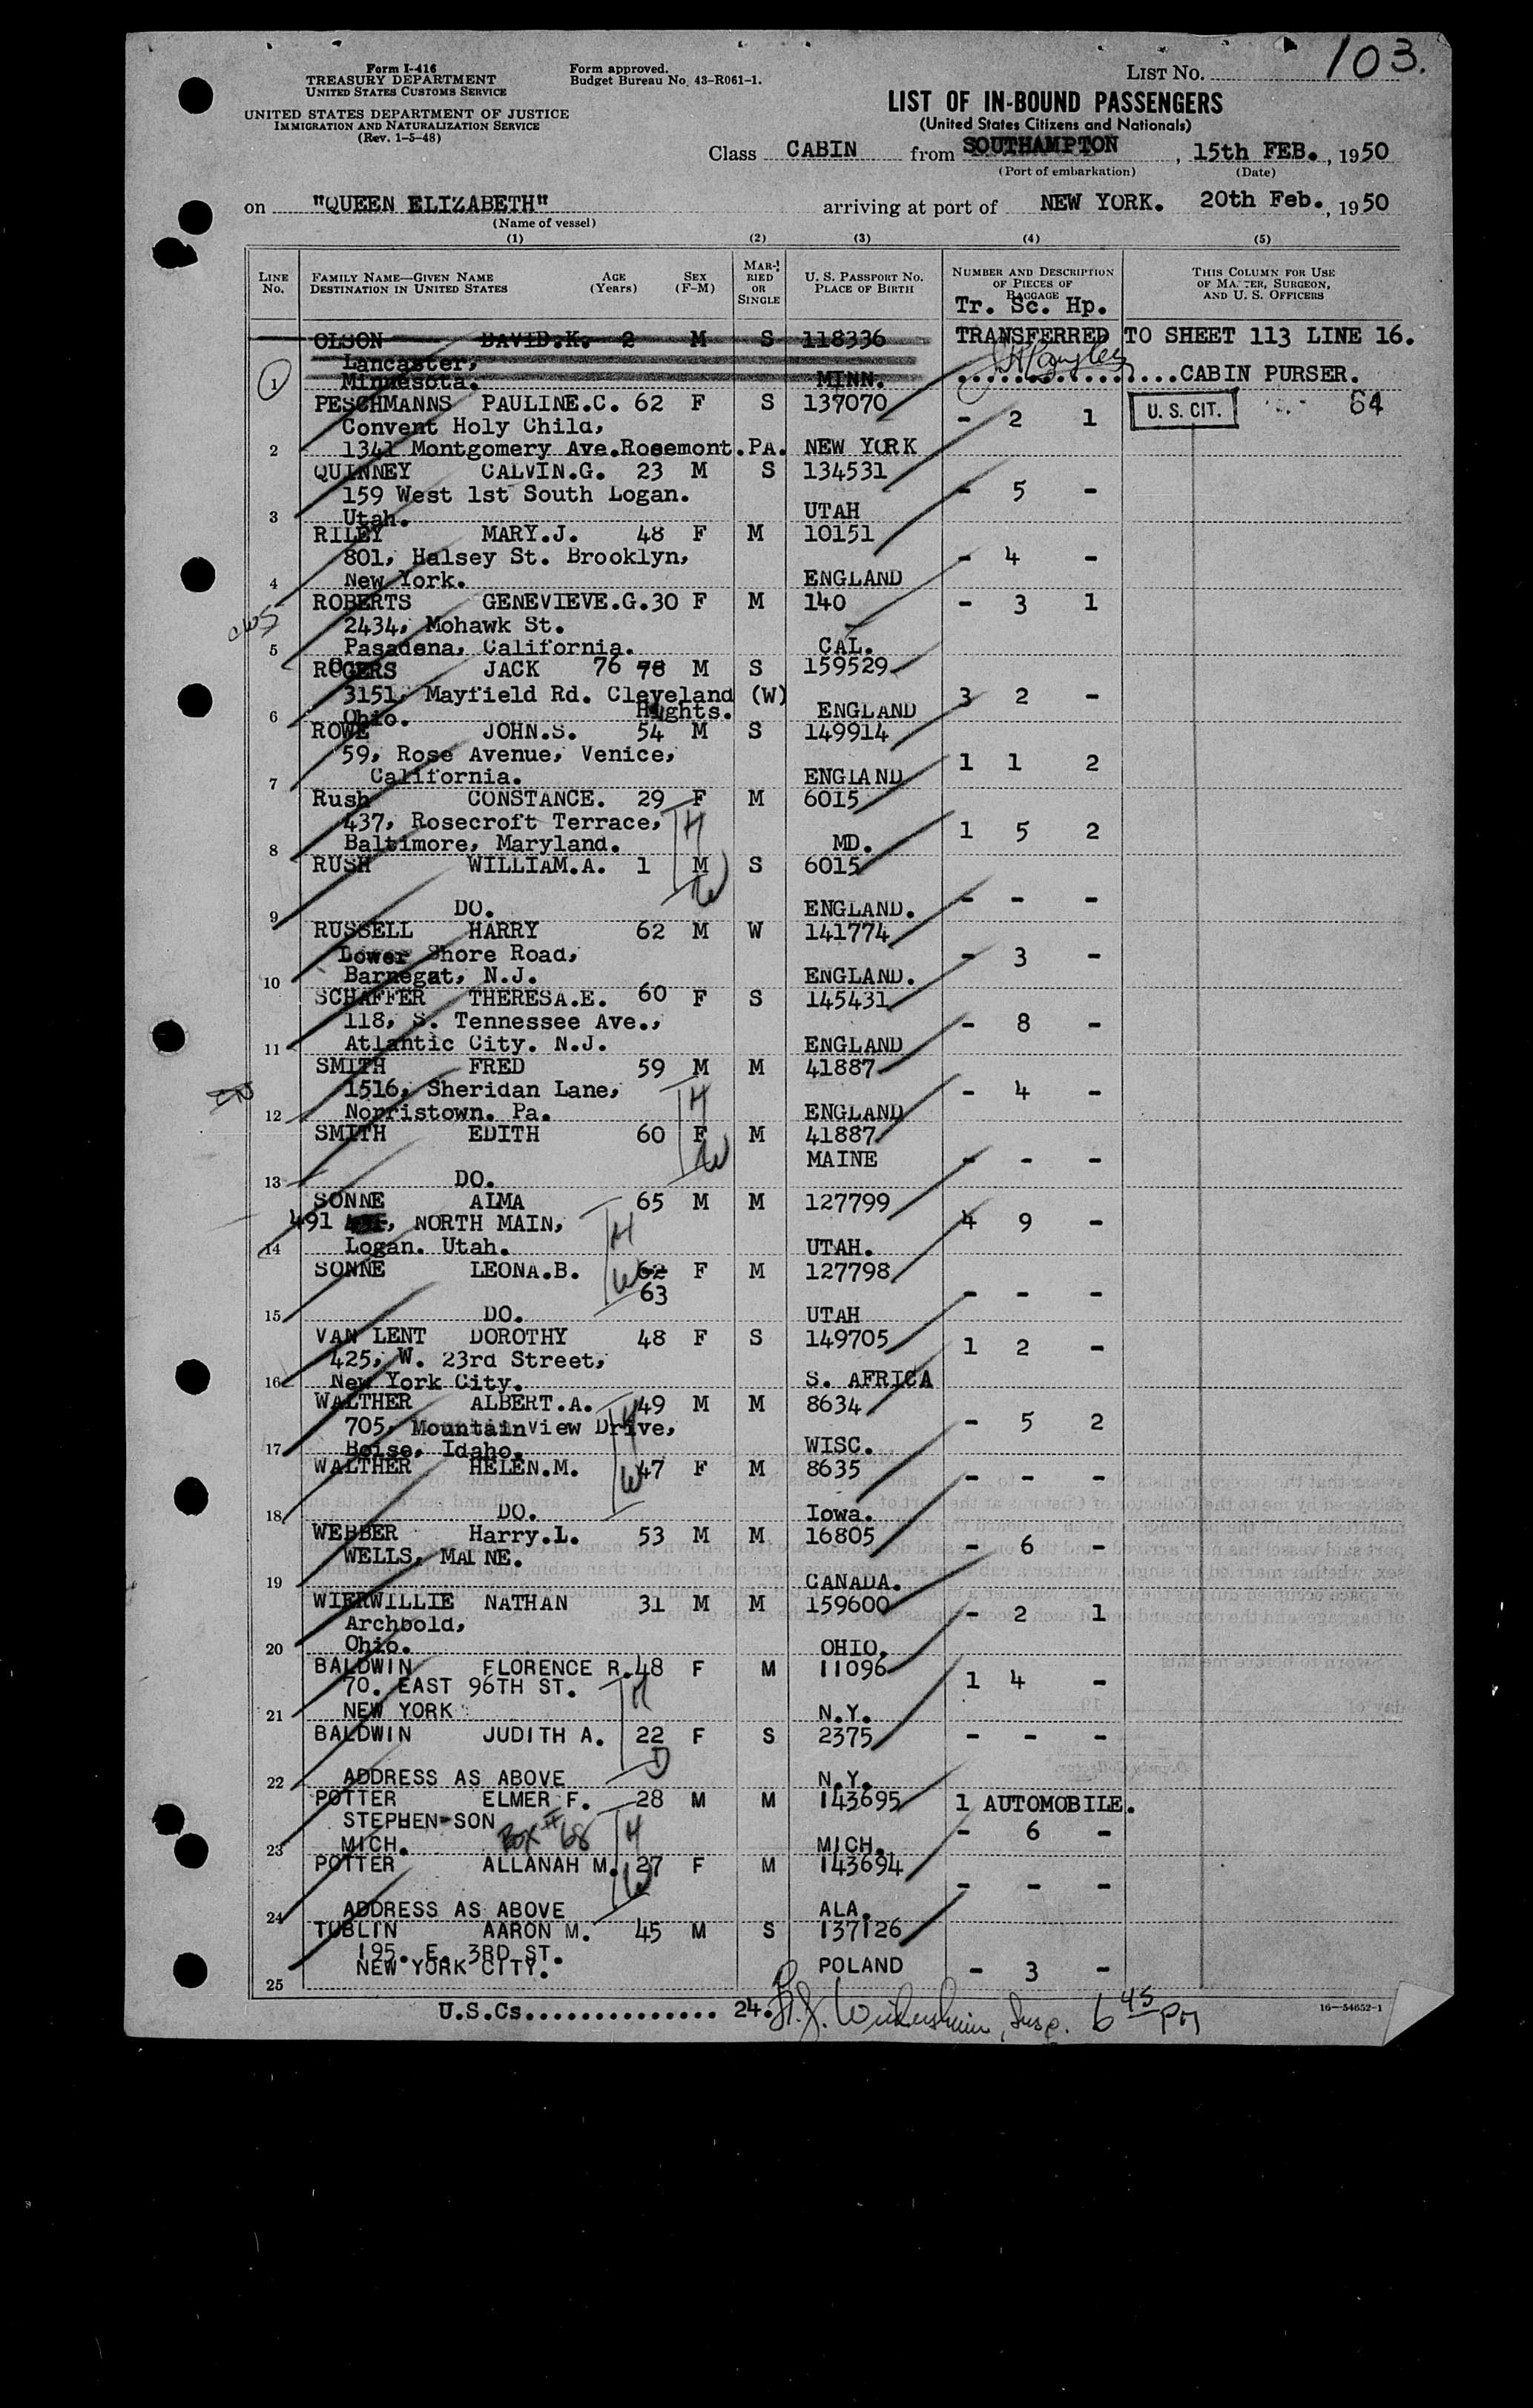 103.
Form I-416
TREASURY DEPARTMENT
UNITED STATES CUSTOMS SERVICE
Form approved.
Budget Bureau No. 43-R061-1.
LIST NO.
UNITED STATES DEPARTMENT OF JUSTICE
IMMIGRATION AND NATURALIZATION SERVICE
(Rev. 1-5-48)
LIST OF IN-BOUND PASSENGERS
(United States Citizens and Nationals)
Class CABIN from SOUTHAMPTON, 15th FEB., 1950
(Port of embarkation) (Date)
on "QUEEN ELIZABETH" arriving at port of NEW YORK. 20th Feb., 1950
(Name of vessel)
(1) (2) (3) (4) (5)
LINE No. FAMILY NAME—GIVEN NAME DESTINATION IN UNITED STATES AGE (Years) SEX (F-M) MARRIED OR SINGLE U. S. PASSPORT NO. PLACE OF BIRTH NUMBER AND DESCRIPTION OF PIECES OF BAGGAGE THIS COLUMN FOR USE OF MASTER, SURGEON, AND U. S. OFFICERS
Tr. Sc. Hp.
OLSON DAVID.K. 2 M S 118336 TRANSFERRED TO SHEET 113 LINE 16.
Lancaster,
1 Minnesota. MINN. ....................CABIN PURSER.
PESCHMANNS PAULINE.C. 62 F S 137070 - 2 1 U. S. CIT. 64
Convent Holy Child,
2 1341 Montgomery Ave.Rosemont.PA. NEW YORK
QUINNEY CALVIN.G. 23 M S 134531 - 5 -
159 West 1st South Logan.
3 Utah. UTAH
RILEY MARY.J. 48 F M 10151 - 4 -
801, Halsey St. Brooklyn,
4 New York. ENGLAND
ROBERTS GENEVIEVE.G. 30 F M 140 - 3 1
2434, Mohawk St.
5 Pasadena, California. CAL.
ROGERS JACK 76 78 M S 159529
3151, Mayfield Rd. Cleveland (W) 3 2 -
6 Ohio. Hights. ENGLAND
ROWE JOHN.S. 54 M S 149914
59, Rose Avenue, Venice, 1 1 2
7 California. ENGLAND
Rush CONSTANCE. 29 F M 6015
437, Rosecroft Terrace, H 1 5 2
8 Baltimore, Maryland. MD.
RUSH WILLIAM.A. 1 M S 6015
W
9 DO. ENGLAND. - - -
RUSSELL HARRY 62 M W 141774
Lower Shore Road, - 3 -
10 Barnegat, N.J. ENGLAND.
SCHAFFER THERESA.E. 60 F S 145431
118, S. Tennessee Ave., - 8 -
11 Atlantic City. N.J. ENGLAND
SMITH FRED 59 M M 41887
1516, Sheridan Lane, H - 4 -
12 Norristown. Pa. ENGLAND
SMITH EDITH 60 F M 41887
W MAINE - - -
13 DO.
SONNE ALMA 65 M M 127799
491, NORTH MAIN, H 4 9 -
14 Logan. Utah. UTAH.
SONNE LEONA.B. 62 F M 127798
W 63 - - -
15 DO. UTAH
VAN LENT DOROTHY 48 F S 149705 1 2 -
425, W. 23rd Street,
16 New York City. S. AFRICA
WALTHER ALBERT.A. 49 M M 8634
705, Mountain View Drive, H - 5 2
17 Boise, Idaho. WISC.
WALTHER HELEN.M. 47 F M 8635
W - - -
18 DO. Iowa.
WEBBER Harry.L. 53 M M 16805
WELLS, MAINE. - 6 -
19 CANADA.
WIERWILLIE NATHAN 31 M M 159600 - 2 1
Archbold,
20 Ohio. OHIO.
BALDWIN FLORENCE R. 48 F M 11096
70. EAST 96TH ST. H 1 4 -
21 NEW YORK N.Y.
BALDWIN JUDITH A. 22 F S 2375 - - -
D
22 ADDRESS AS ABOVE N.Y.
POTTER ELMER F. 28 M M 143695 1 AUTOMOBILE.
STEPHEN-SON Box # 68 H - 6 -
23 MICH. MICH.
POTTER ALLANAH M. 27 F M 143694
W - - -
24 ADDRESS AS ABOVE ALA.
TUBLIN AARON M. 45 M S 137126
195. E. 3RD ST.
25 NEW YORK CITY. POLAND - 3 -
U.S.Cs............... 24. Insp. 6 45 PM
16—54652-1